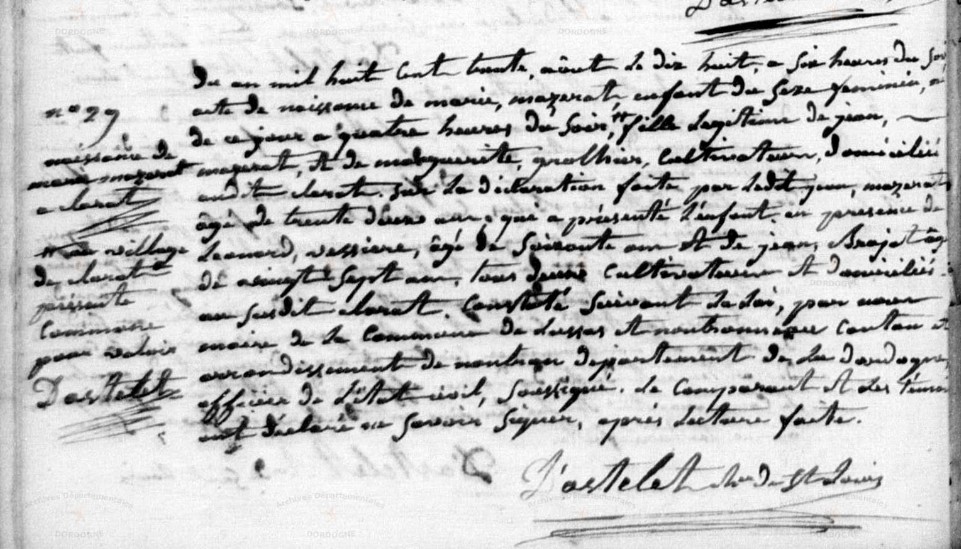 n° 29
naissance de
marie mazerat
a clarat
# au village
de clarat
présente
Commune
pour valoir
Dastelet
du an mil huit cent trente, aôut le dix huit, a six heures du soir
acte de naissance de marie, mazerat, enfant du sexe feminin, né
de ce jour a quatre heures du soir, # fille legitime de jean,
mazerat, et de marguerite, grolhier, Cultivateur, domiciliés
audit clarat, sur la déclaration faite par ledit jean, mazerat
âgé de trente deux an, qui a présenté l'enfant, en présence de
Leonard, vessiere, âgé de soixante an et de jean, Brajot âgé
de vingt sept an, tous deux cultivateurs et domiciliés
au susdit clarat. Constaté suivant la loi, par nous
maire de la Commune de Lussas et nontronneau canton et
arrondissement de nontron departement de la dordogne,
officier de l'état civil, soussigné. le comparant et les temoins
ont déclaré ne savoir signer, après lecture faite.
Dastelet ch.er de St Louis